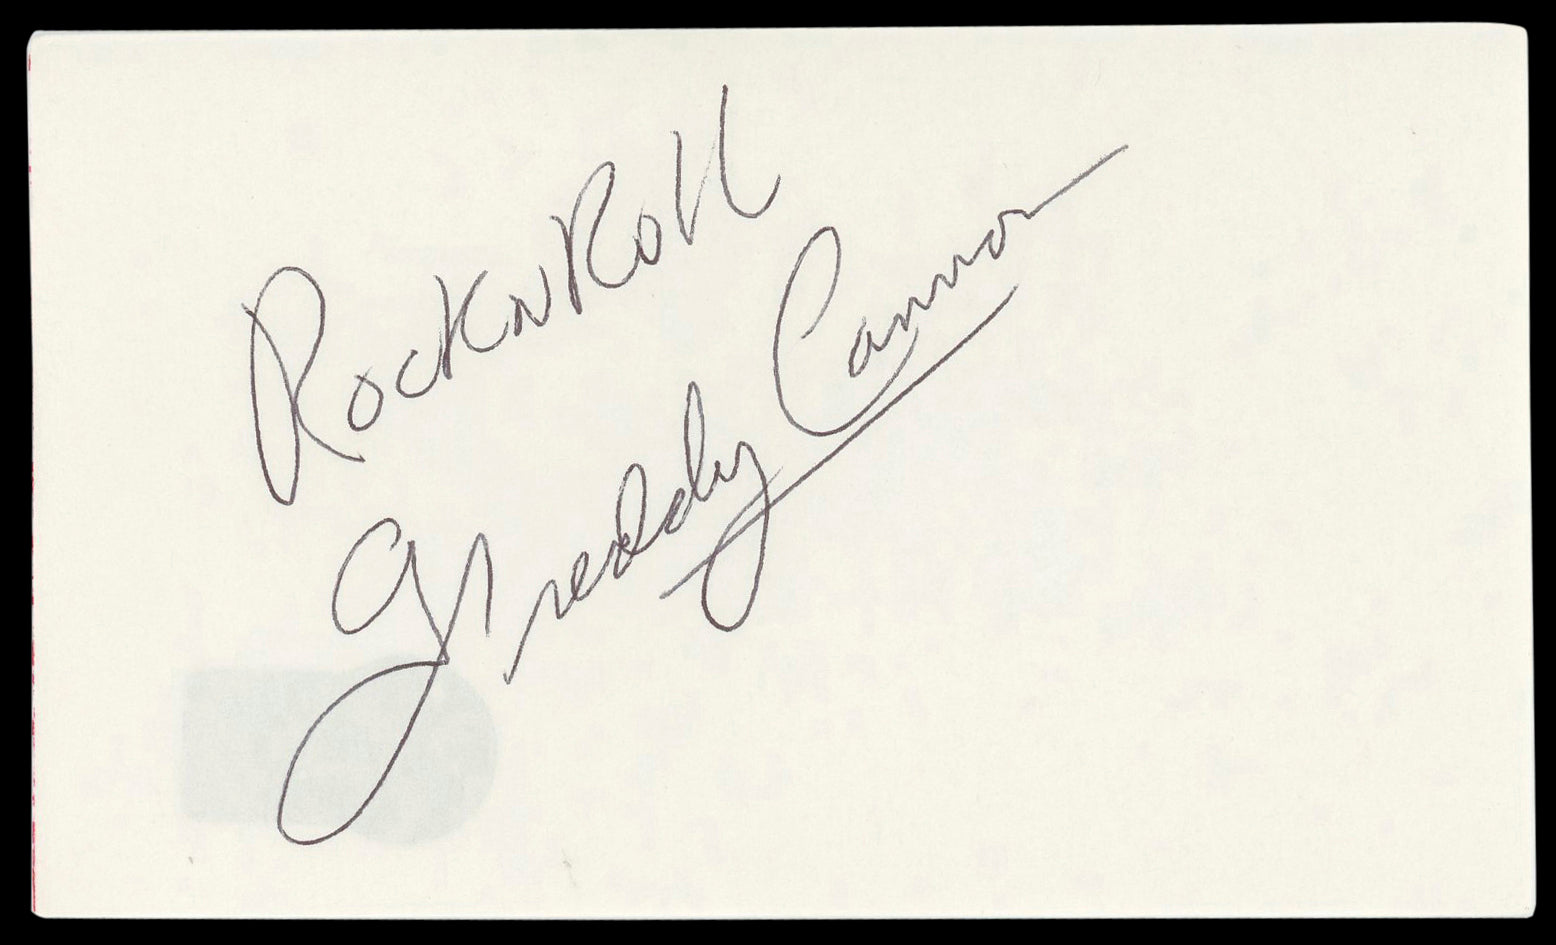 RocknRoll
Freddy Cannon